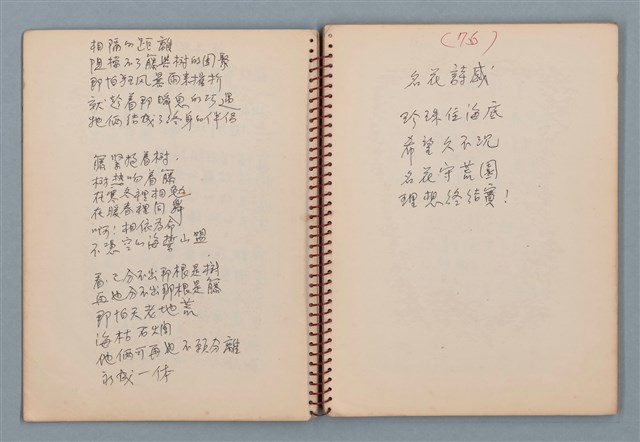 相隔的距離
阻撓不了籐與樹的團聚
那怕狂风暴雨来摧折
就趁着那瞬息的巧遇
她俩结成了終身的伴侣
籐緊抱着樹.
树热吻着籐
在寒冬裡相勉
在暖春裡同舞
啊！相依为命
不憑空的海誓山盟
看.已分不出那根是樹
再也分不出那根是籐
那怕天老地荒
海枯石烂
他俩再也不願分離
永成一体
(76)
名花詩感
珍珠住海底
希望久不沉
名花守荒園
理想終結實！